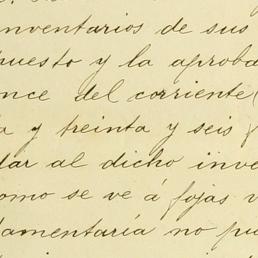 inventarios de sus
puesto y la aproba
once del corriente
a y treinta y seis
dar al dicho inve
como se ve á fojas v
tamentaría no pu